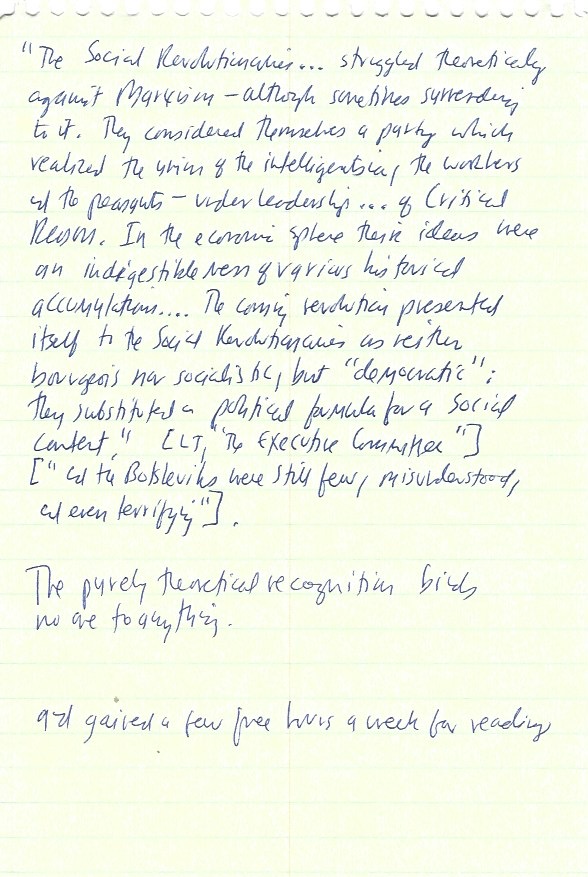 "The Social Revolutionaries... struggled theoretically
against Marxism – although sometimes surrending
to it. They considered themselves a party which
realized the union of the intelligentsia, the workers
and the peasants – under leadership... of Critical
Reason. In the economic sphere their ideas were
an indigestible mess of various historical
accumulations.... The coming revolution presented
itself to the Social Revolutionaries as neither
bourgeois nor socialistic, but "democratic":
they substituted a political formula for a Social
content." [LT, "The Executive Committee"]
[" and the Bolsheviks were still few, misunderstood,
and even terrifying"].
The purely theoretical recognition binds
no one to anything.
and gained a few free hours a week for reading